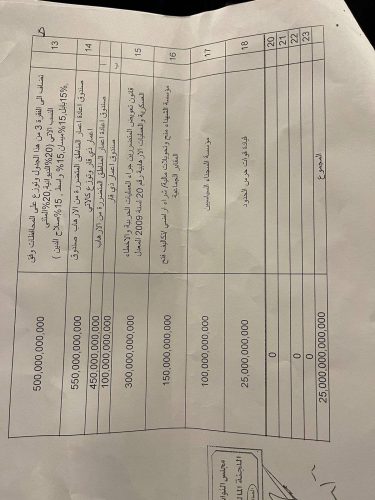 13
تضاف الى الفقرة 3 من هذا الجدول وتوزع على المحافظات وفق
النسب الاتي (20%الديوانية 20%المثنى
15%بابل 15%ميسان 15% واسط 15%صلاح الدين )
500,000,000,000
14
صندوق اعادة اعمار المناطق المتضررة من الارهاب صندوق
اعمار ذي قار وتوزع كالاتي
550,000,000,000
أ
صندوق اعادة اعمار المناطق المتضررة من الارهاب
450,000,000,000
ب
صندوق اعمار ذي قار
100,000,000,000
15
قانون تعويض المتضررين جراء العمليات الحربية والاخطاء
العسكرية والعمليات الارهابية رقم 20 لسنة 2009 المعدل
300,000,000,000
16
مؤسسة الشهداء منح وتعويلات مالية/ شراء اراضي /تكاليف فتح
المقابر الجماعية
150,000,000,000
17
مؤسسة السجناء السياسيين
100,000,000,000
18
قيادة قوات حرس الحدود
25,000,000,000
20
0
21
22
0
23
0
المجموع
25,000,000,000,000
مجلس النواب
اللجنة المالية